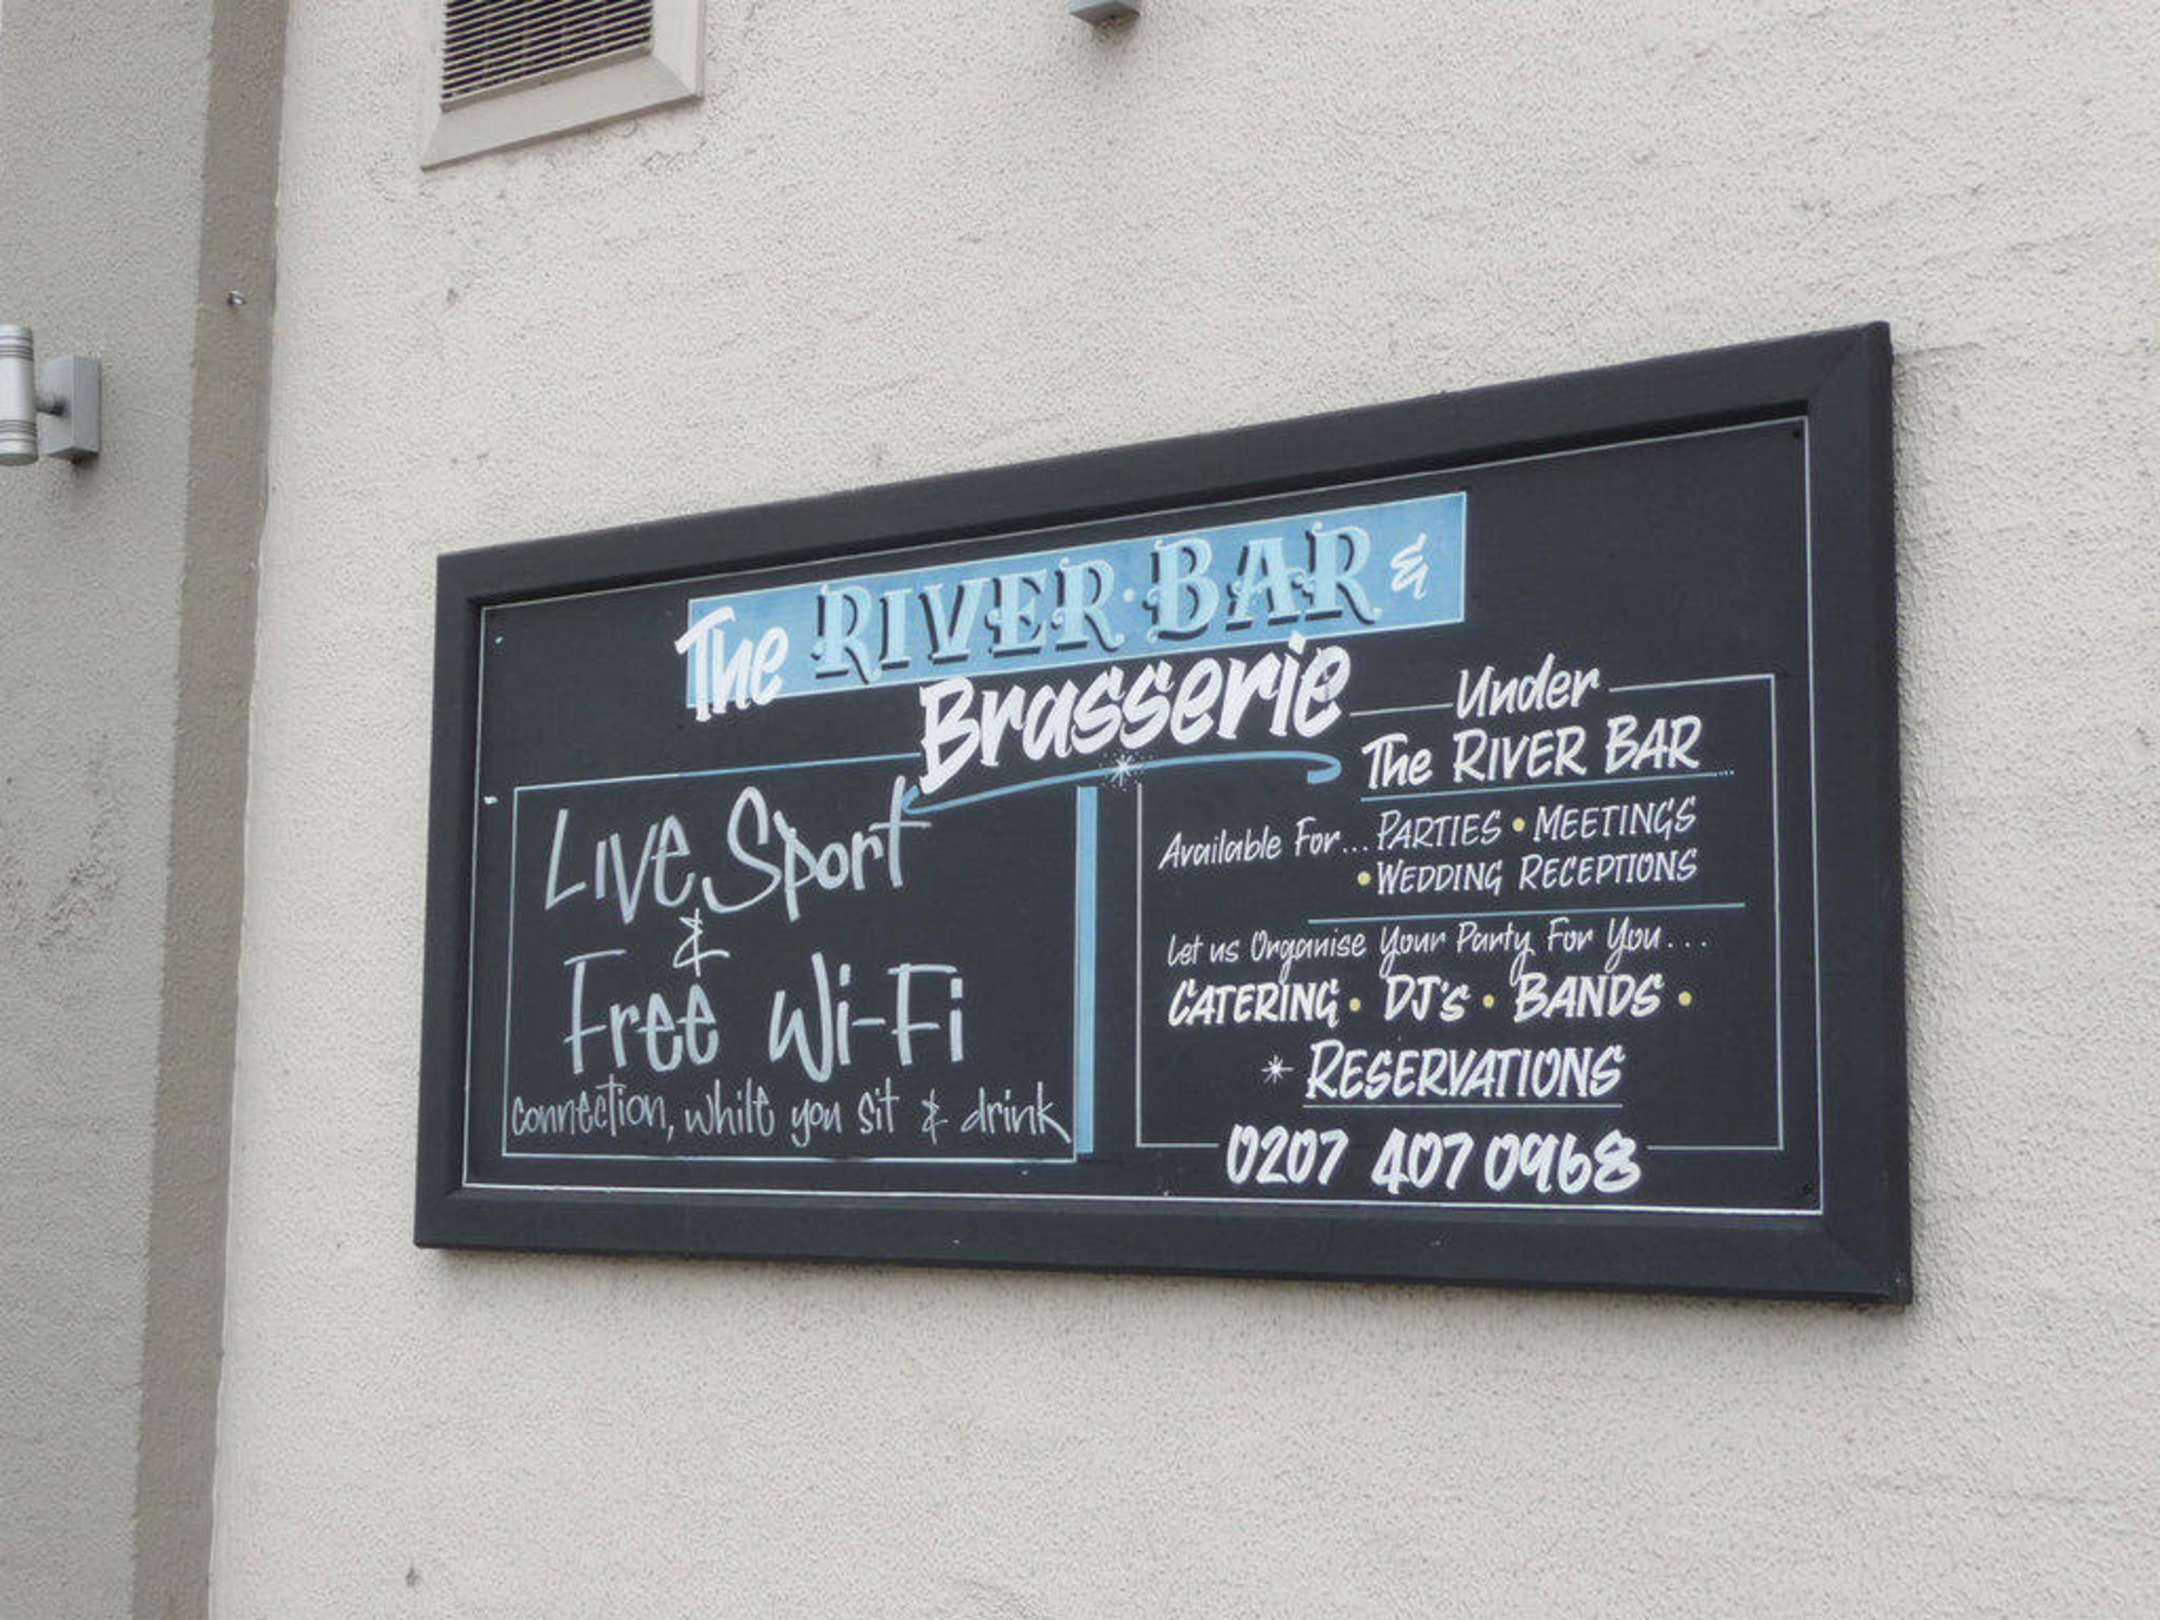 The RIVER·BAR &
Brasserie
Live Sport
&
Free Wi-Fi
connection, while you sit & drink
Under
The RIVER BAR
Available For... PARTIES • MEETINGS
• WEDDING RECEPTIONS
Let us Organise Your Party For You...
CATERING • DJ's • BANDS •
* RESERVATIONS
0207 407 0968